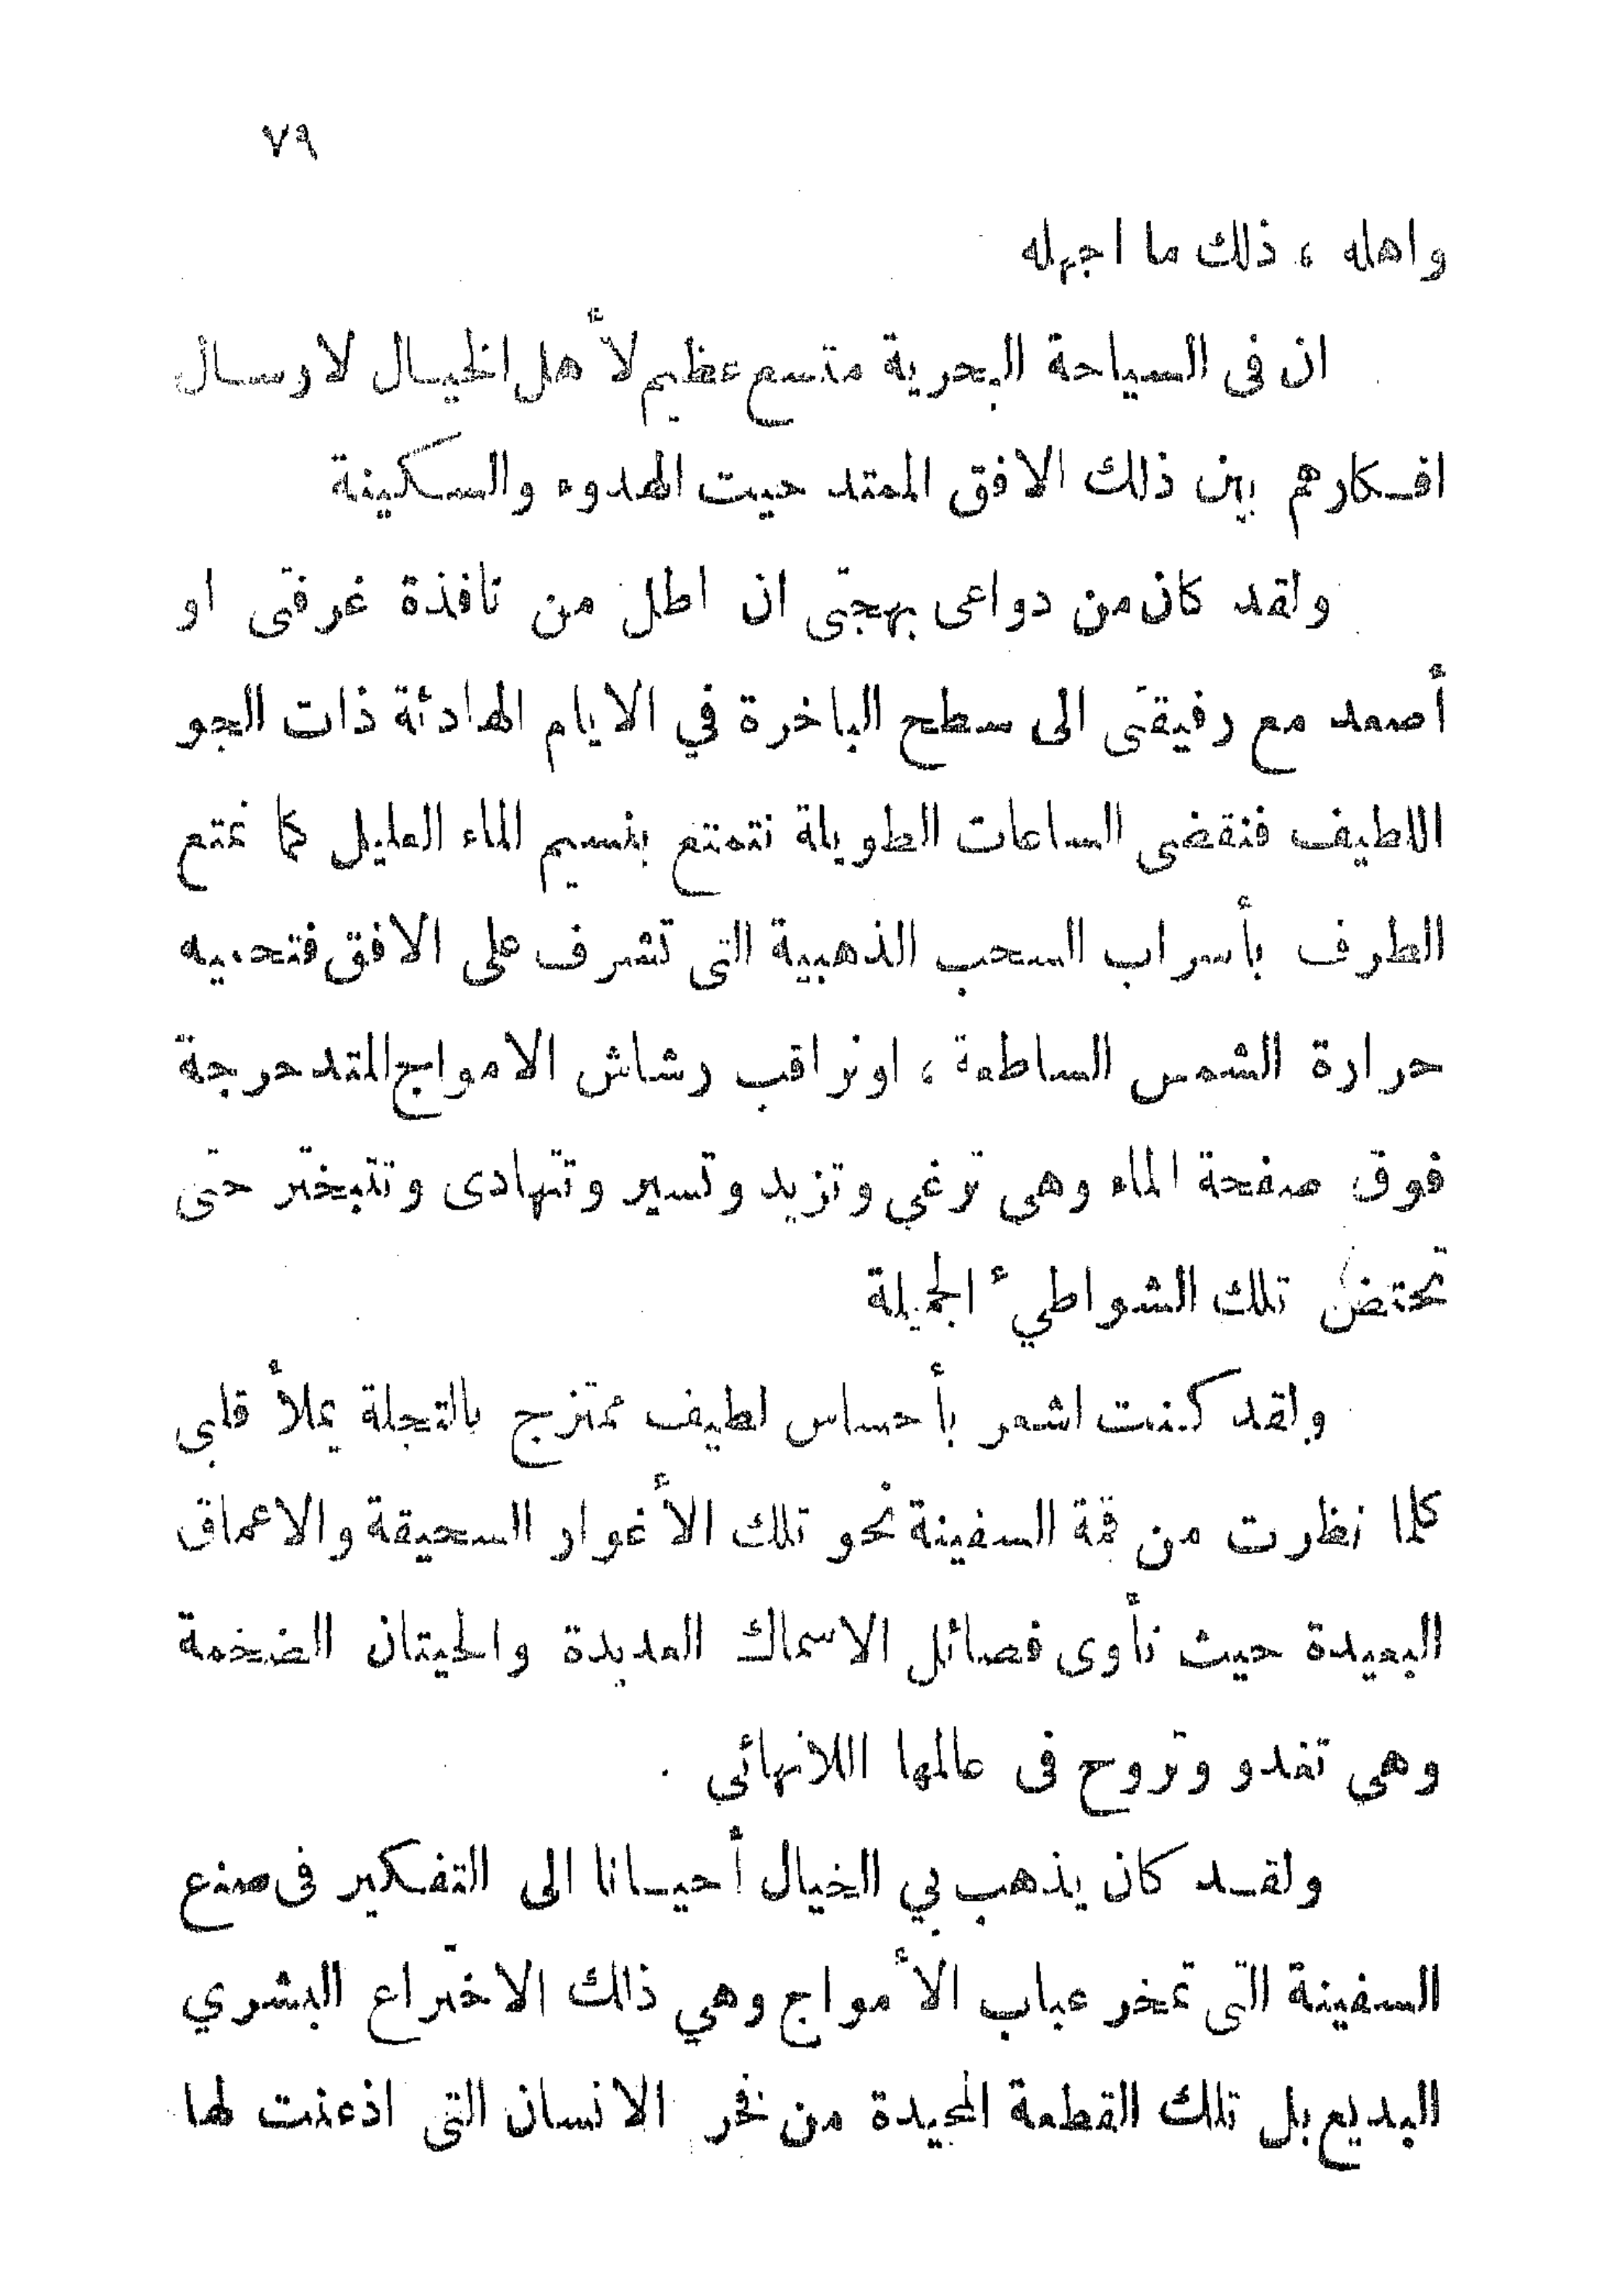 ٧٩
واهله ، ذلك ما اجهله
ان فى السياحة البحرية متسع عظيم لأهل الخيـال لارسـال
افـكارهم بين ذلك الافق الممتد حيت الهدوء والسـكينة
ولقد كان من دواعى بهجتى ان اطل من نافذة غرفتى او
أصعد مع رفيقتى الى سطح الباخرة في الايام الهادئة ذات الجو
اللطيف فنقضى الساعات الطويلة نتمتع بنسيم الماء العليل كما نمتع
الطرف بأسراب السحب الذهبية التى تشرف على الافق فتحميه
حرارة الشمس الساطعة ، او نراقب رشاش الامواج المتدحرجة
فوق صفحة الماء وهى ترغي وتزبد وتسير وتتهادى وتتبختر حتى
تحتضن تلك الشواطيء الجميلة
ولقد كنت اشعر بأحساس لطيف ممتزج بالتجلة يملأ قلبي
كلما نظرت من قمة السفينة نحو تلك الأغوار السحيقة والاعماق
البعيدة حيث تأوى فصائل الاسماك العديدة والحيتان الضخمة
وهى تغدو وتروح فى عالمها اللانهائي .
ولقـد كان يذهب بي الخيال أحيـانا الى التفـكير فى صنع
السفينة التى تمخر عباب الأمواج وهي ذلك الاختراع البشري
البديع بل تلك القطعة المجيدة من فخر الانسان التى اذعنت لها